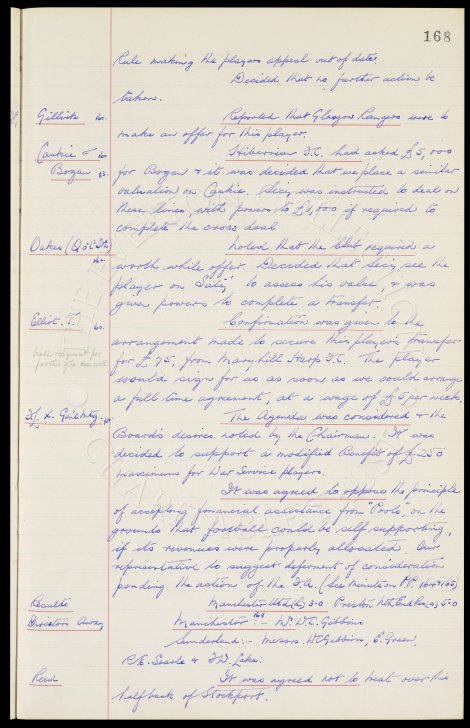 168
Rule making the players appeal out of date.
Decided that no further action be
taken.
Gillick 160. Reported that Glasgow Rangers were to
make an offer for this player.
Caskie & 160 Hibernian F.C. had asked £5,000
Bogan 63. for Bogan & it was decided that we place a similar
valuation on Caskie. Secy. was instructed to deal on
these lines, with powers to £1,000 if required to
complete the cross deal
Oakes (Q of Sth) Noted that the Club required a
worth while offer. Decided that Secy. see the
player on Satdy to assess his value, & was
given powers to complete a transfer.
Elliot. T. 160. Confirmation was given to the
arrangement made to secure this player's transfer
for £75, from Maryhill Harp F.C. The player
would sign for us as soon as we could arrange
a full-time agreement, at a wage of £5 per week.
F.L. x. Genl. Mtg. The Agenda was considered & the
Board's desires noted by the Chairman. It was
decided to support a modified Benefit of £250
maximum for War Service players.
It was agreed to oppose the principle
of accepting financial assistance from "Pools", on the
grounds that football could be self supporting,
if its revenues were properly allocated. Our
representative to suggest deferment of consideration
pending the action of the F.A. (see minutes on P.P. 164 & 165)
Results Manchester Utd (h) 3-0 Preston Nth End Res (a) 5-0
Directors Away Manchester :- Mr. W.C. Gibbins
Sunderland :- Messrs. W.C. Gibbins, E. Green,
R.E. Searle & F.W. Lake.
Reid It was agreed not to treat over this
half back of Stockport.